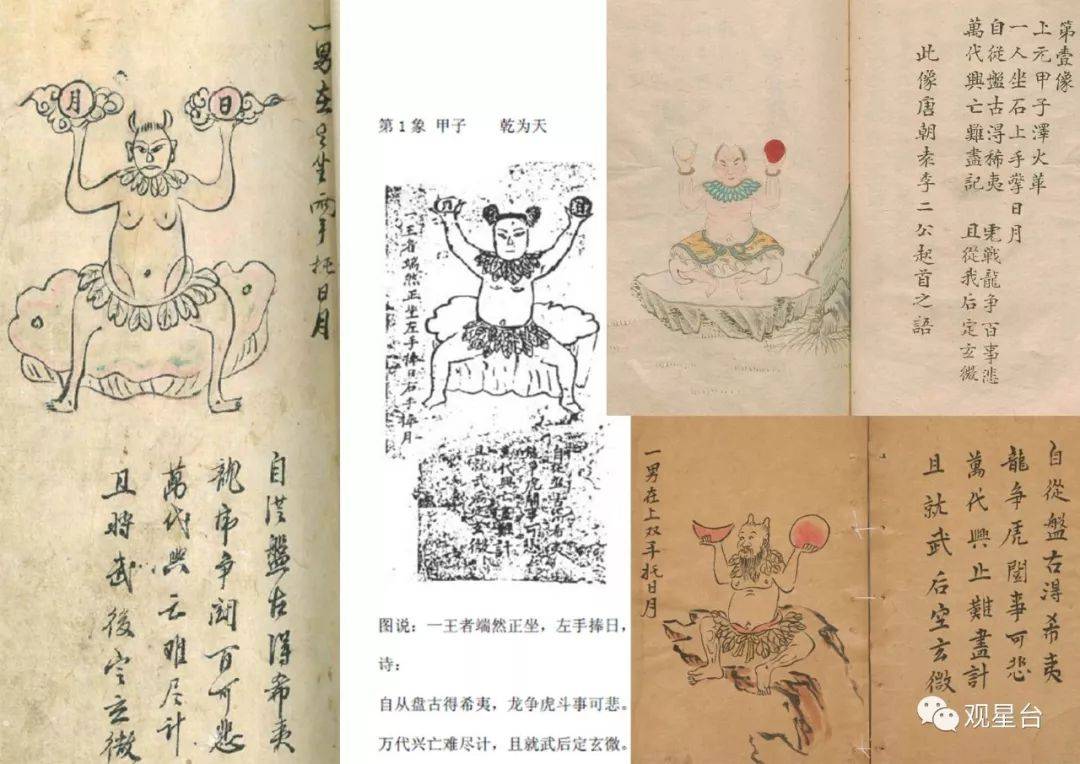 月
日
一男在坐两手托日月
自洪盤古得希夷
龍争闘百可悲
萬代興亡难尽計
且將武後定玄微
第1象 甲子 乾为天
一王者端然正坐左手捧日右手捧月
萬代興亡難計
且就武后定玄微
图说：一王者端然正坐，左手捧日，
诗：
自从盘古得希夷，龙争虎斗事可悲。
万代兴亡难尽计，且就武后定玄微。
第壹像
上元甲子澤火革
一人坐石上手擎日月
自從盤古得稀夷 虎戰龍争百事悲
萬代興亡難盡記 且從我后定玄微
此像唐朝袁李二公起首之語
一男在上双手托日月
自從盤古得希夷
龍争虎闘事可悲
萬代興止難盡計
且就武后空玄微
观星台